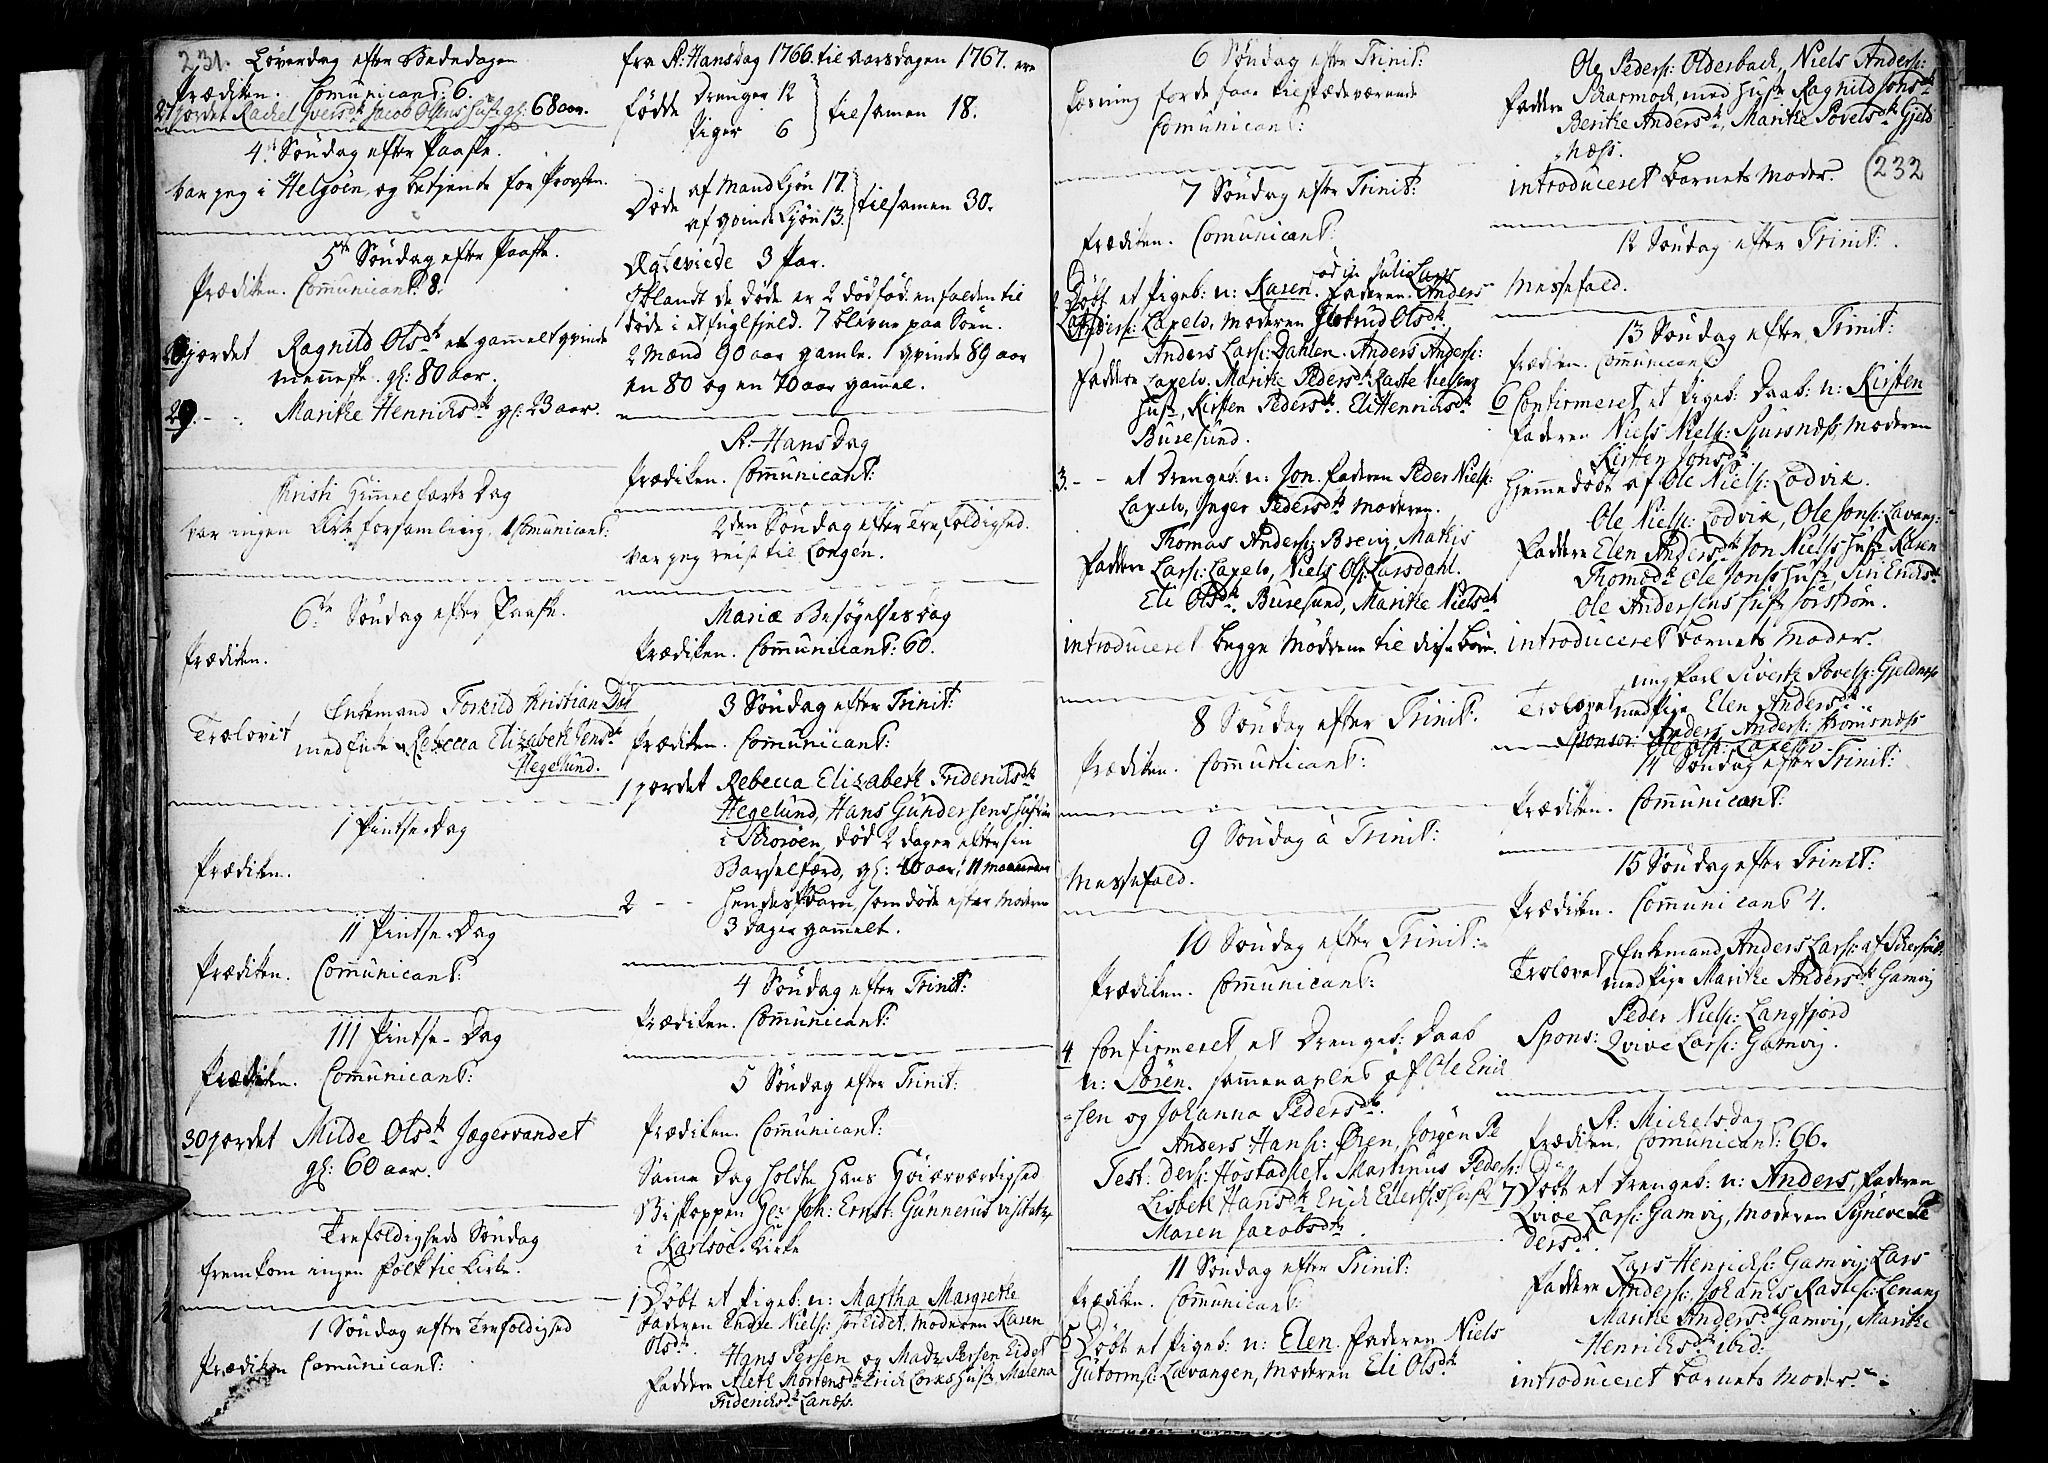 231. Løverdag efter Bededagen
Prædiken. Comunicant: 6.
27 jordet Rachel Iversdtr Jacob Olsens hust: gl: 68 aar.
4de Søndag efter Paaske.
var jeg i Helgøen, og betjente for Provsten.
5te Søndag efter Paaske.
Prædiken. Communicant: 8.
28 jordet Ragnild Olsdtr et gammelt qvinde
menneske. gl: 80 aar.
29. - - Maritke Henrichsdtr gl: 23 aar.
Christi Himmelfarts Dag
var ingen Kirkeforsamling, Comunicant:
6te Søndag efter Paaske.
Prædiken.
Trolovet Enkemand Torkild Kristian Dal
med Enke Rebecca Elizabeth Jensdtr
Hegelund.
1 Pintse-Dag
Prædiken.
11 Pintse-Dag
Prædiken. Comunicant:
111 Pintse-Dag
Prædiken. Communicant:
30 jordet Milde Olsdtr Jægervandet
gl: 60 aar.
Trefoldigheds Søndag
fremkom ingen folk til Kirke.
1 Søndag efter Trefoldighed
Prædiken Comunicant:
fra St: Hansdag 1766. til aarsdagen 1767. ere
fødde Drenger 12
Piger 6
tilsamen 18.
Døde af Mandkjøn 17.
af qvindekjøn 13.
tilsamen 30.
Ægteviede 3 Par.
Iblandt de døde er 2 dødfød. en falden til
døde i et fuglfjeld. 7 blevne paa Søen.
2 Mænd 90 aar gamle. 1 qvinde 89 aar
en 80 og en 70 aar gammel.
St: Hans Dag
Prædiken. Communicant:
2den Søndag efter Trefoldighed.
var jeg reist til Longen.
Mariæ Besøgelses dag
Prædiken. Communicant: 60.
3 Søndag efter Trinit:
Prædiken. Communicant:
1 jordet Rebecca Elizabeth Fridrichsdtr
Hegelund, Hans Gundersens hustrue
i Skorøen, død 2 dager efter sin
Barselfærd, gl: 40 aar, 11 maaneder
2 - - hendes Barn, som døde efter Moderen
3 Dager gammelt.
4 Søndag efter Trinit:
Prædiken. Communicant:
5 Søndag efter Trinit:
Prædiken. Communicant:
Samme Dag holdte Hans Høiærværdighed
Biskoppen Hr: Joh: Ernst: Gunnerus visitatz
i Karlsøe-Kirke
1 Døbt et Pigeb: n: Martha Margrethe
Faderen Endre Niels: Sør Eidet, Moderen Karen
Olsdtr.
Hans Persen og Madz Persen Eidet
Faddere Aleth Mortensdtr Erich Lorks hust: Malena
Fridrichsdtr Landss:
6 Søndag efter Trinit:
Læsning forde faar tilstedeværende
Comunicant:
7 Søndag efter Trinit:
Prædiken. Comunicant:
2 Døbt et Pigeb: n: Karen. Faderen. Lars
Anders: Laxelv, Moderen Gjertrud Olsdtr
Anders Lars: Dahlen. Anders Anders:
Faddere Laxelv. Maritke Pedersdtr Raste Nielsens
hust, Kirsten Pedersdtr. Eli Henrichsdtr
Buresund.
3. - - et Drengeb: n: Jon. Faderen Peder Niels:
Laxelv, Inger Pedersdtr Moderen.
Thomas Anders: Breivig, Mathis
Faddere Lars: Laxelv, Niels Ols: Larsdahl.
Eli Olsdtr. Buresund, Maritke Nielsdtr
introduceret begge Mødrene til disse børn.
8 Søndag efter Trinit:
Prædiken. Communicant:
9 Søndag á Trinit:
Messefald.
10 Søndag efter Trinit:
Prædiken. Communicant:
4 Confirmeret et Drengeb: Daab
n: Søren. sammenavlet af Ole Erich
sen og Johanna Pedersdtr.
Anders Hans: Øren, Jørgen Pe
Test: ders: Høstadslet. Martinus Peders:
Lisbeth Hansdtr Erich Evertsens hust:
Maren Jacobsdtr.
11 Søndag efter Trinit:
Prædiken. Communicant:
5 Døbt et Pigeb: n: Elen. Faderen Niels
Gutorms: Lavangen, Moderen Eli Olsdtr
Ole Peders: Olderbach, Niels Anders:
Faddere Skarmoch, med hust: Ragnild Jonsdtr
Beritke Andersdtr, Maritke Povelsdtr Gjeld
næss.
introduceret barnets Moder. 232
12 Søndag efter Trinit:
Messefald.
13 Søndag efter Trinit:
Prædiken. Communicant
6 Confirmeret et Pigeb: Daab: n: Kirsten
Faderen Niels Niels: Sjursnæs, Moderen
Kirsten Jonsdtr
Hjemmedøbt af Ole Niels: Lodvik.
Ole Niels: Lodvik, Ole Jons: Lavang:
Faddere Elen Andersdtr Jon Niels: hust: Karen
Thomædtr Ole Jons: hust, Siri Erichsdtr
Ole Andersens hust: Sørstrøm.
introduceret barnets Moder.
Trolovet ung Karl Sivert Povels: Gjeldnæss
med Pige Elen Andersdtr
Sponsor: Anders Anders: Kromsnæss
Ole Ols: Laxelv
14 Søndag efter Trinit:
Prædiken. Communicant:
15 Søndag efter Trinit:
Prædiken. Communicant 4.
Trolovet Enkemand Anders Lars: af Skersnit:
med Pige Maritke Andersdtr Gamvig
Spons: Peder Niels: Langfjord
Qvive Lars: Gamvig.
St. Michelsdag
Prædiken, Comunicant: 66.
7 Døbt et Drengeb: n: Anders, Faderen
Qvive Lars: Gamvig, Moderen Syneve Pe
dersdtr.
Lars Henrichs: Gamvig, Lars
Faddere Anders: Johannes Rastes: Lenang
Maritke Andersdtr Gamvig, Maritke
Henrichsdtr ibid:
introduceret barnets Moder.